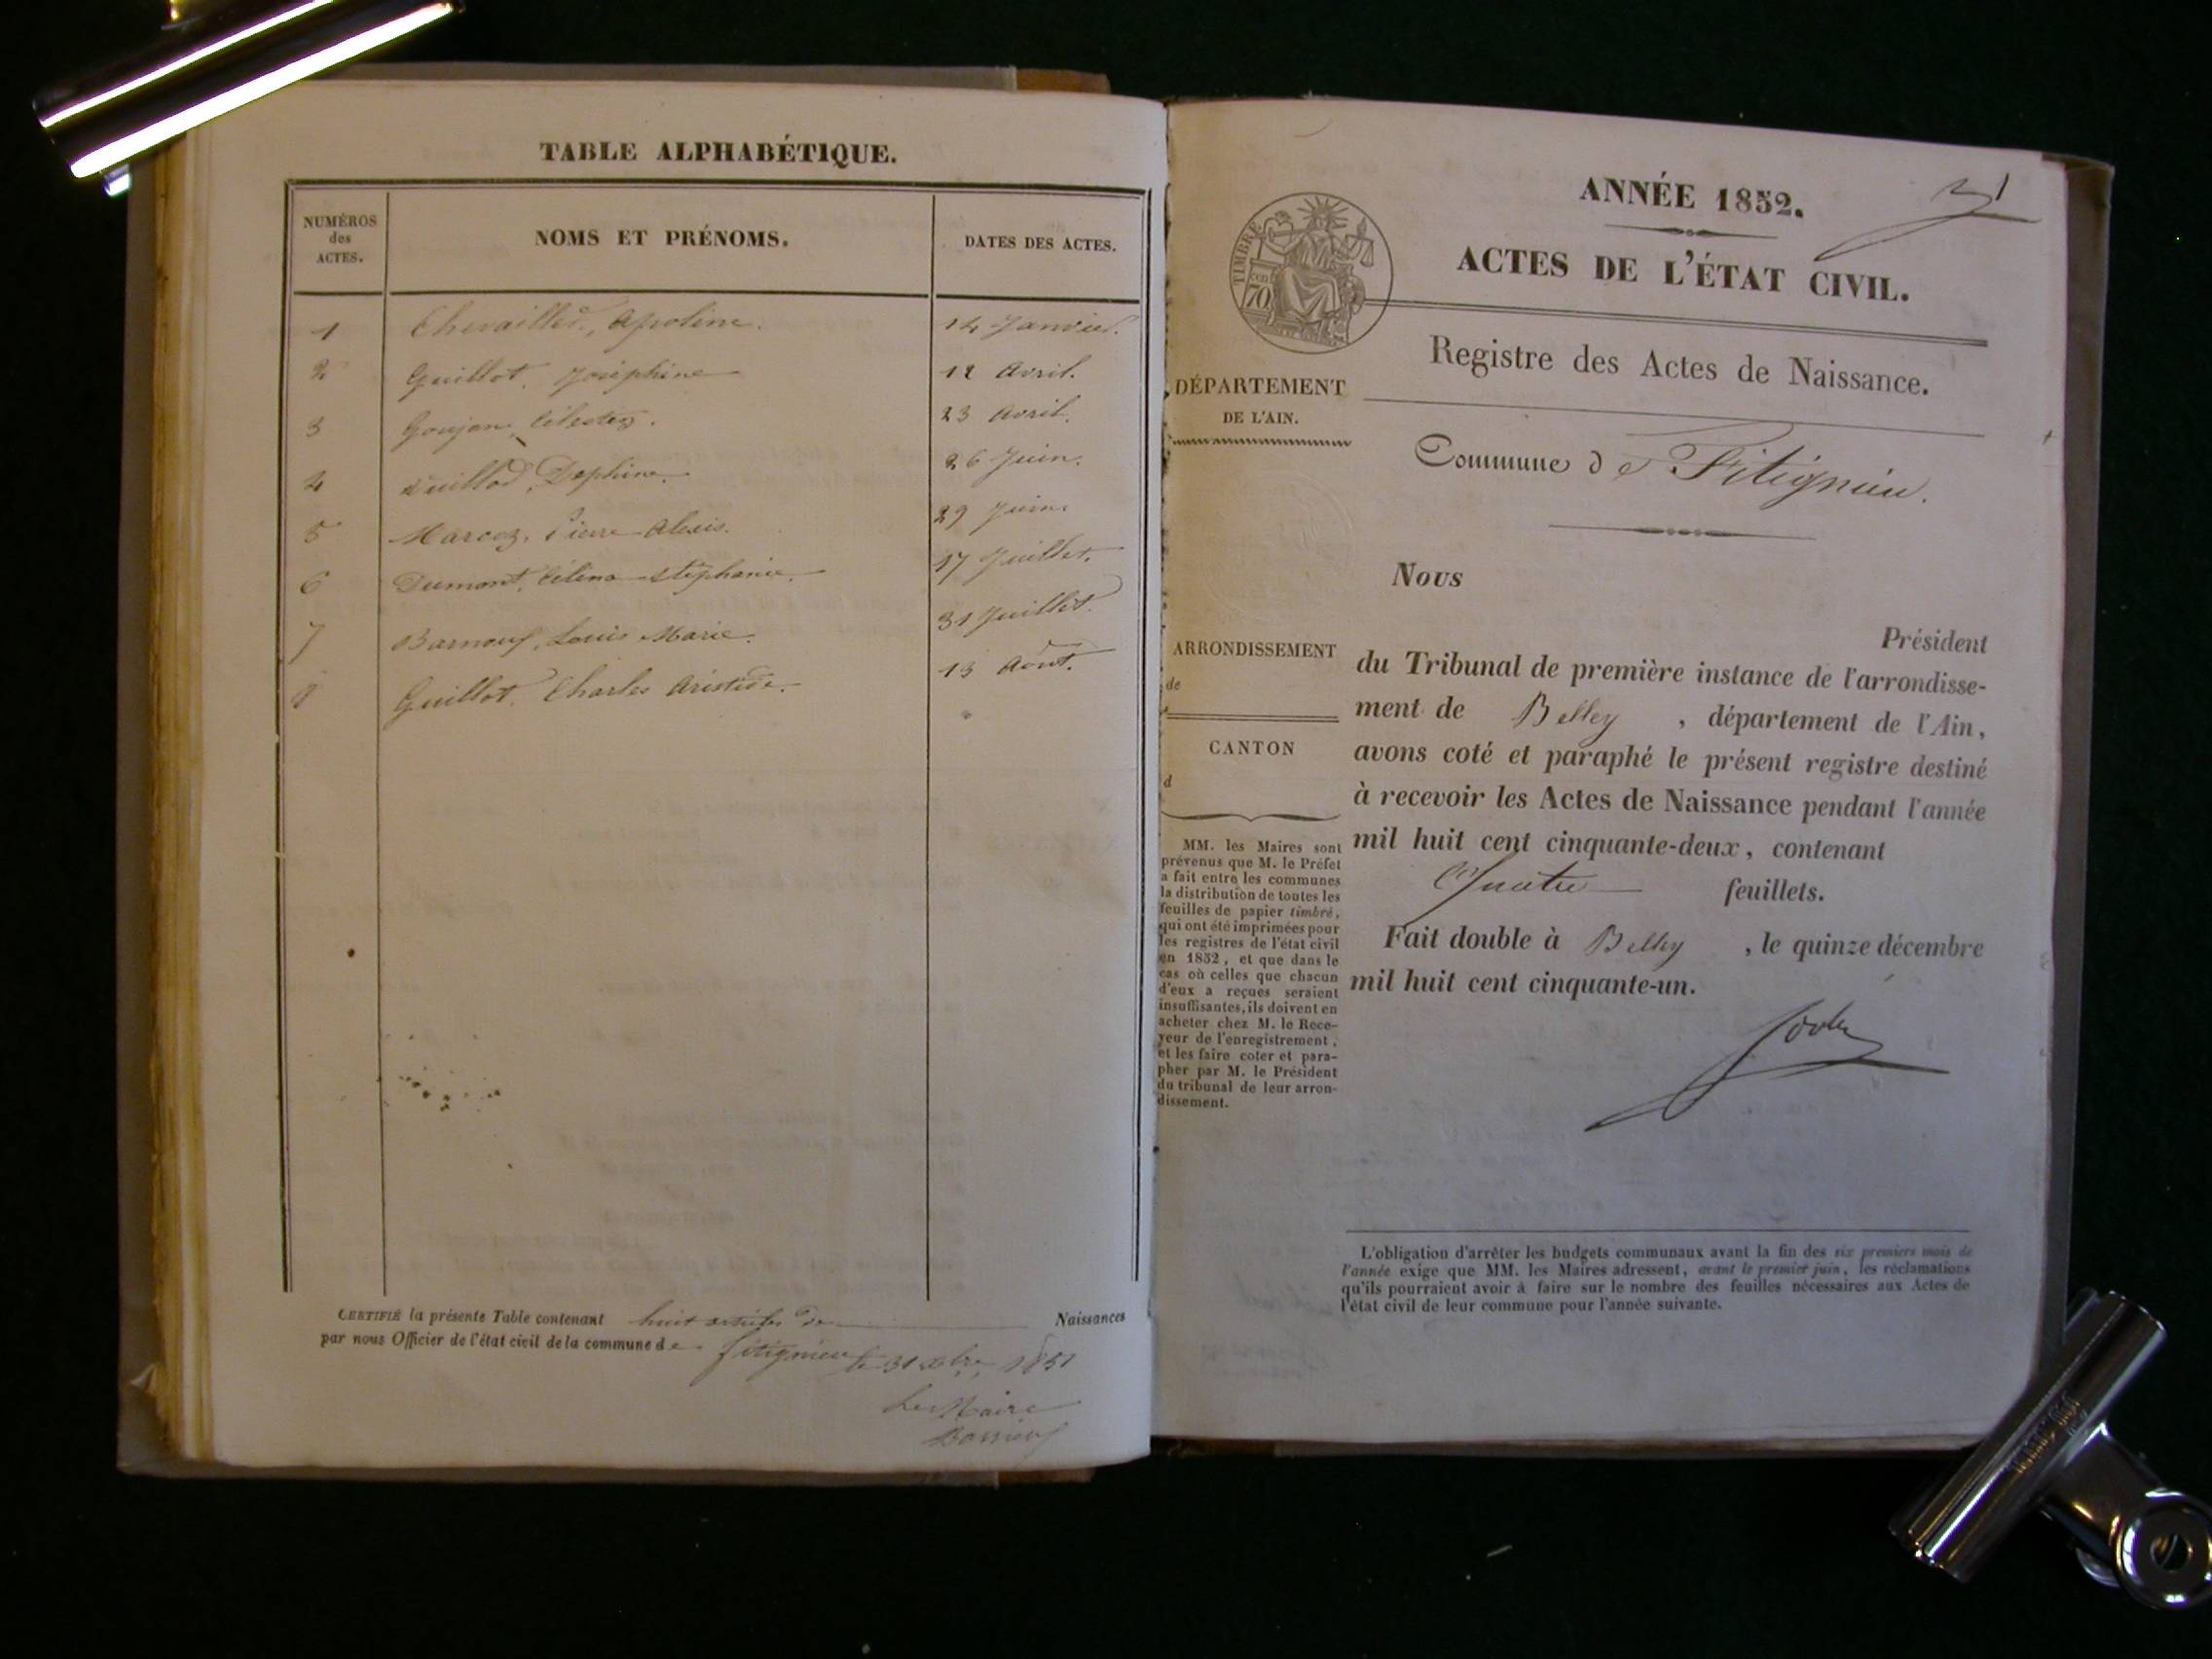 TABLE ALPHABÉTIQUE.
NUMÉROS des ACTES. NOMS ET PRÉNOMS. DATES DES ACTES.
1 Chevailler, Apoline. 14 Janvier.
2 Guillot, Joséphine 12 Avril.
3 Goujon, Célestin. 23 Avril.
4 Vuillod, Dephine. 26 Juin.
5 Marcoz, Pierre Alexis. 29 Juin.
6 Dumont, Célina Stéphanie. 17 Juillet.
7 Louis Marie. 31 Juillet.
8 Guillot, Charles Aristide. 13 Août.
CERTIFIÉ la présente Table contenant huit articles de Naissances
par nous Officier de l'état civil de la commune de fitignieu le 31 xbre 1851
Le Maire
ANNÉE 1852.
ACTES DE L'ÉTAT CIVIL.
TIMBRE
70
Registre des Actes de Naissance.
DÉPARTEMENT
DE L'AIN.
Commune de Fitignieu.
Nous
Président
ARRONDISSEMENT
de
CANTON
d
du Tribunal de première instance de l'arrondisse-
ment de Belley , département de l'Ain,
avons coté et paraphé le présent registre destiné
à recevoir les Actes de Naissance pendant l'année
mil huit cent cinquante-deux, contenant
Quatre feuillets.
Fait double à Belley , le quinze décembre
mil huit cent cinquante-un.
MM. les Maires sont
prévenus que M. le Préfet
a fait entre les communes
la distribution de toutes les
feuilles de papier timbré,
qui ont été imprimées pour
les registres de l'état civil
en 1852, et que dans le
cas où celles que chacun
d'eux a reçues seraient
insuffisantes, ils doivent en
acheter chez M. le Rece-
veur de l'enregistrement,
et les faire coter et para-
pher par M. le Président
du tribunal de leur arron-
dissement.
L'obligation d'arrêter les budgets communaux avant la fin des six premiers mois de
l'année exige que MM. les Maires adressent, avant le premier juin, les réclamations
qu'ils pourraient avoir à faire sur le nombre des feuilles nécessaires aux Actes de
l'état civil de leur commune pour l'année suivante.